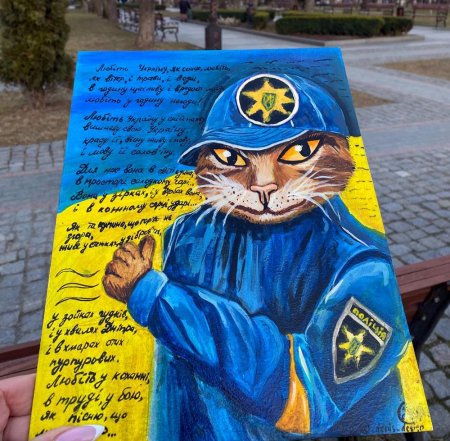 Любіть Україну, як сонце, любіть,
як вітер, і трави, і води,
в годину щасливу і в радості
любіть у годину негоди!
Любіть Україну у сні й наяву
вишневу свою Україну
красу її, вічно живу і нову
і мову її солов'їну
Для нас вона в світі
в просторів солодкому чарі...
Вона у зірках, і у вербах вона,
і в кожному серця ударі...
Як та купина, що горить не
згора,
живе у стежках, у дібровах,
у зойках гудків,
і у хвилях Дніпра,
і в хмарах отих
пурпурових.
Любіть у коханні,
в труді, у бою,
як пісню, що
ПОЛІЦІЯ